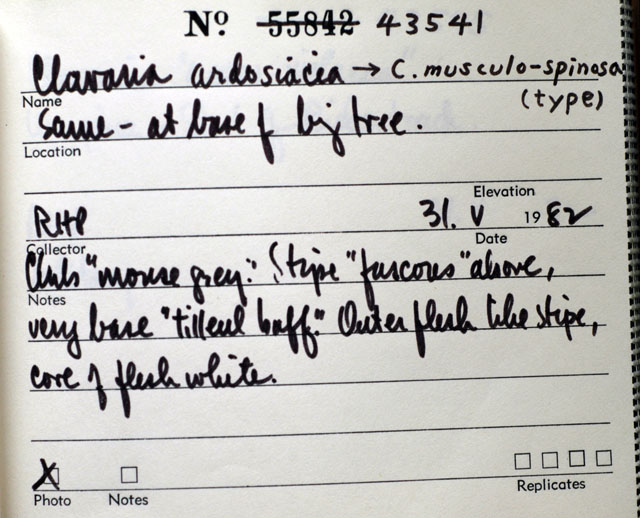 Nº 55842 43541
Clavaria ardosiacea → C. musculo-spinosa
Name (type)
Same - at base of big tree.
Location
Elevation
RHP 31. V 1982
Collector Date
Clubs "mouse grey." Stipe "fuscous" above,
Notes
very base "tilleul buff." Outer flesh like stipe,
core of flesh white.
X
Photo Notes Replicates